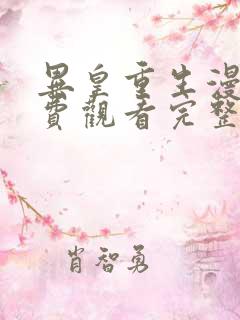 異皇重生漫
費觀看完整
肖智勇